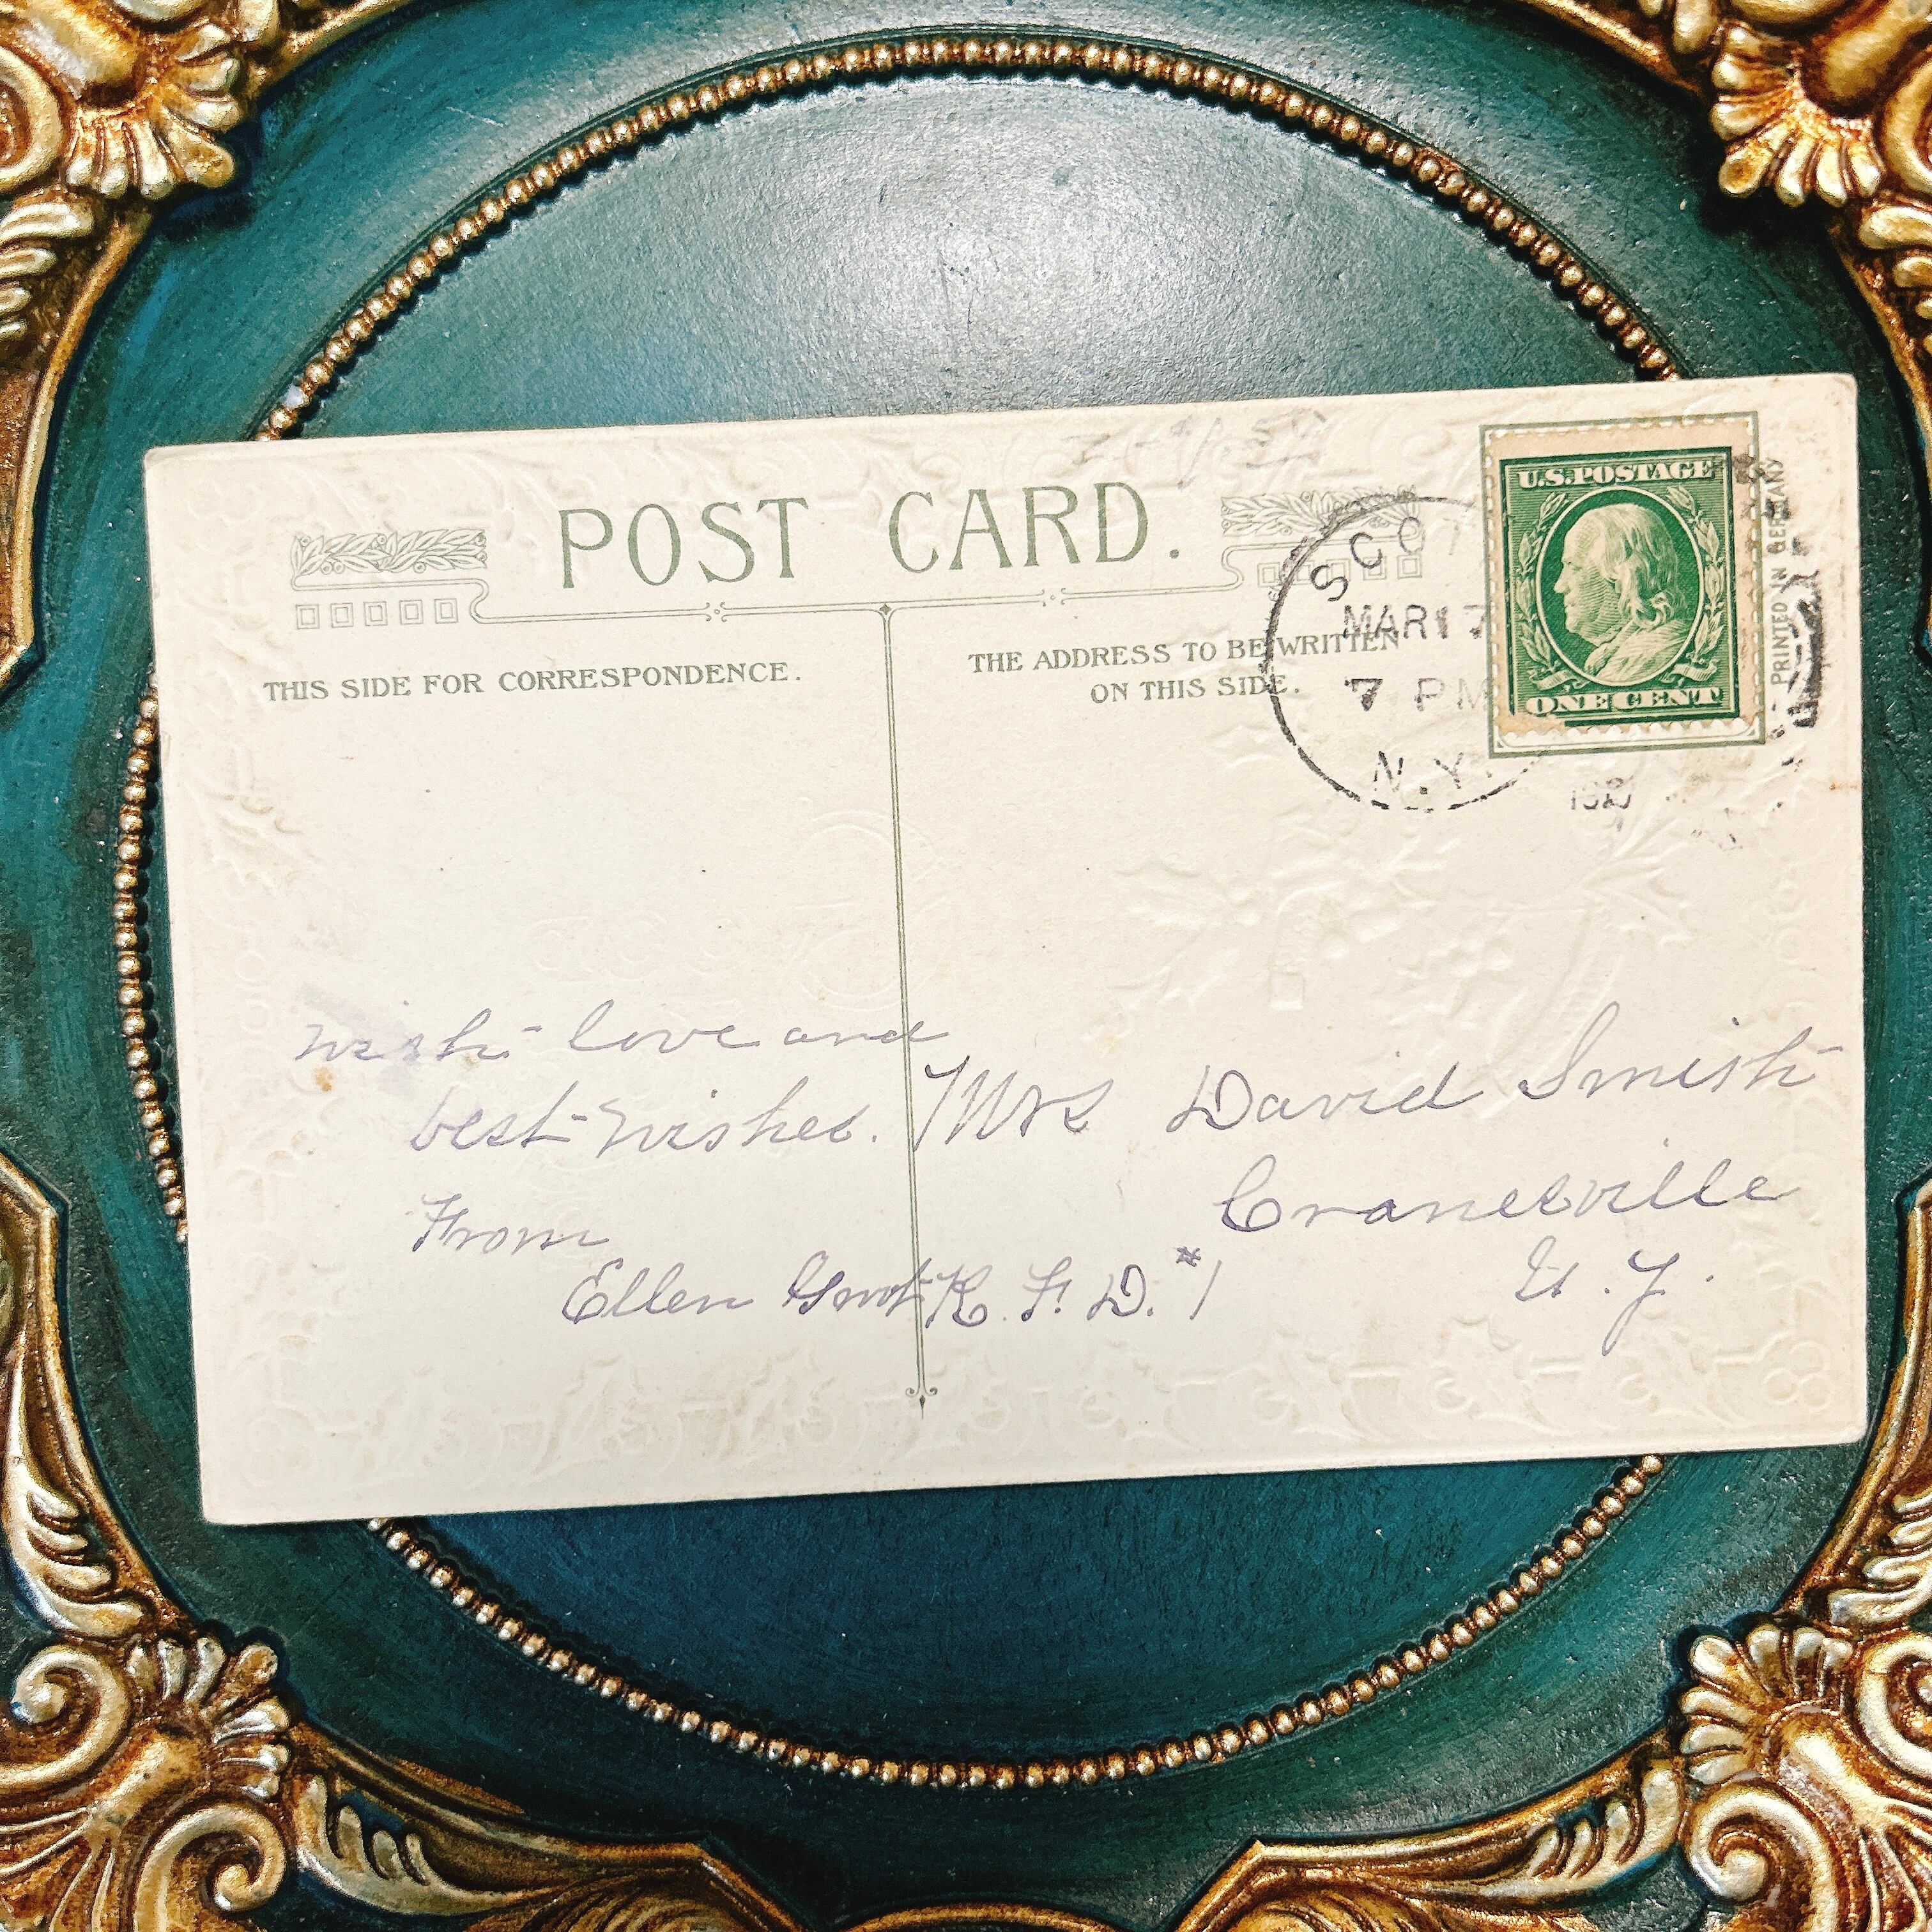 POST CARD.
THIS SIDE FOR CORRESPONDENCE.
THE ADDRESS TO BE WRITTEN
ON THIS SIDE.
U.S. POSTAGE
ONE CENT
PRINTED IN GERMANY
MAR 17
7 PM
N.Y.
with love and
best wishes.
From
Ellen
Mrs David Smith
Cranesville
R. F. D. #1
N. Y.